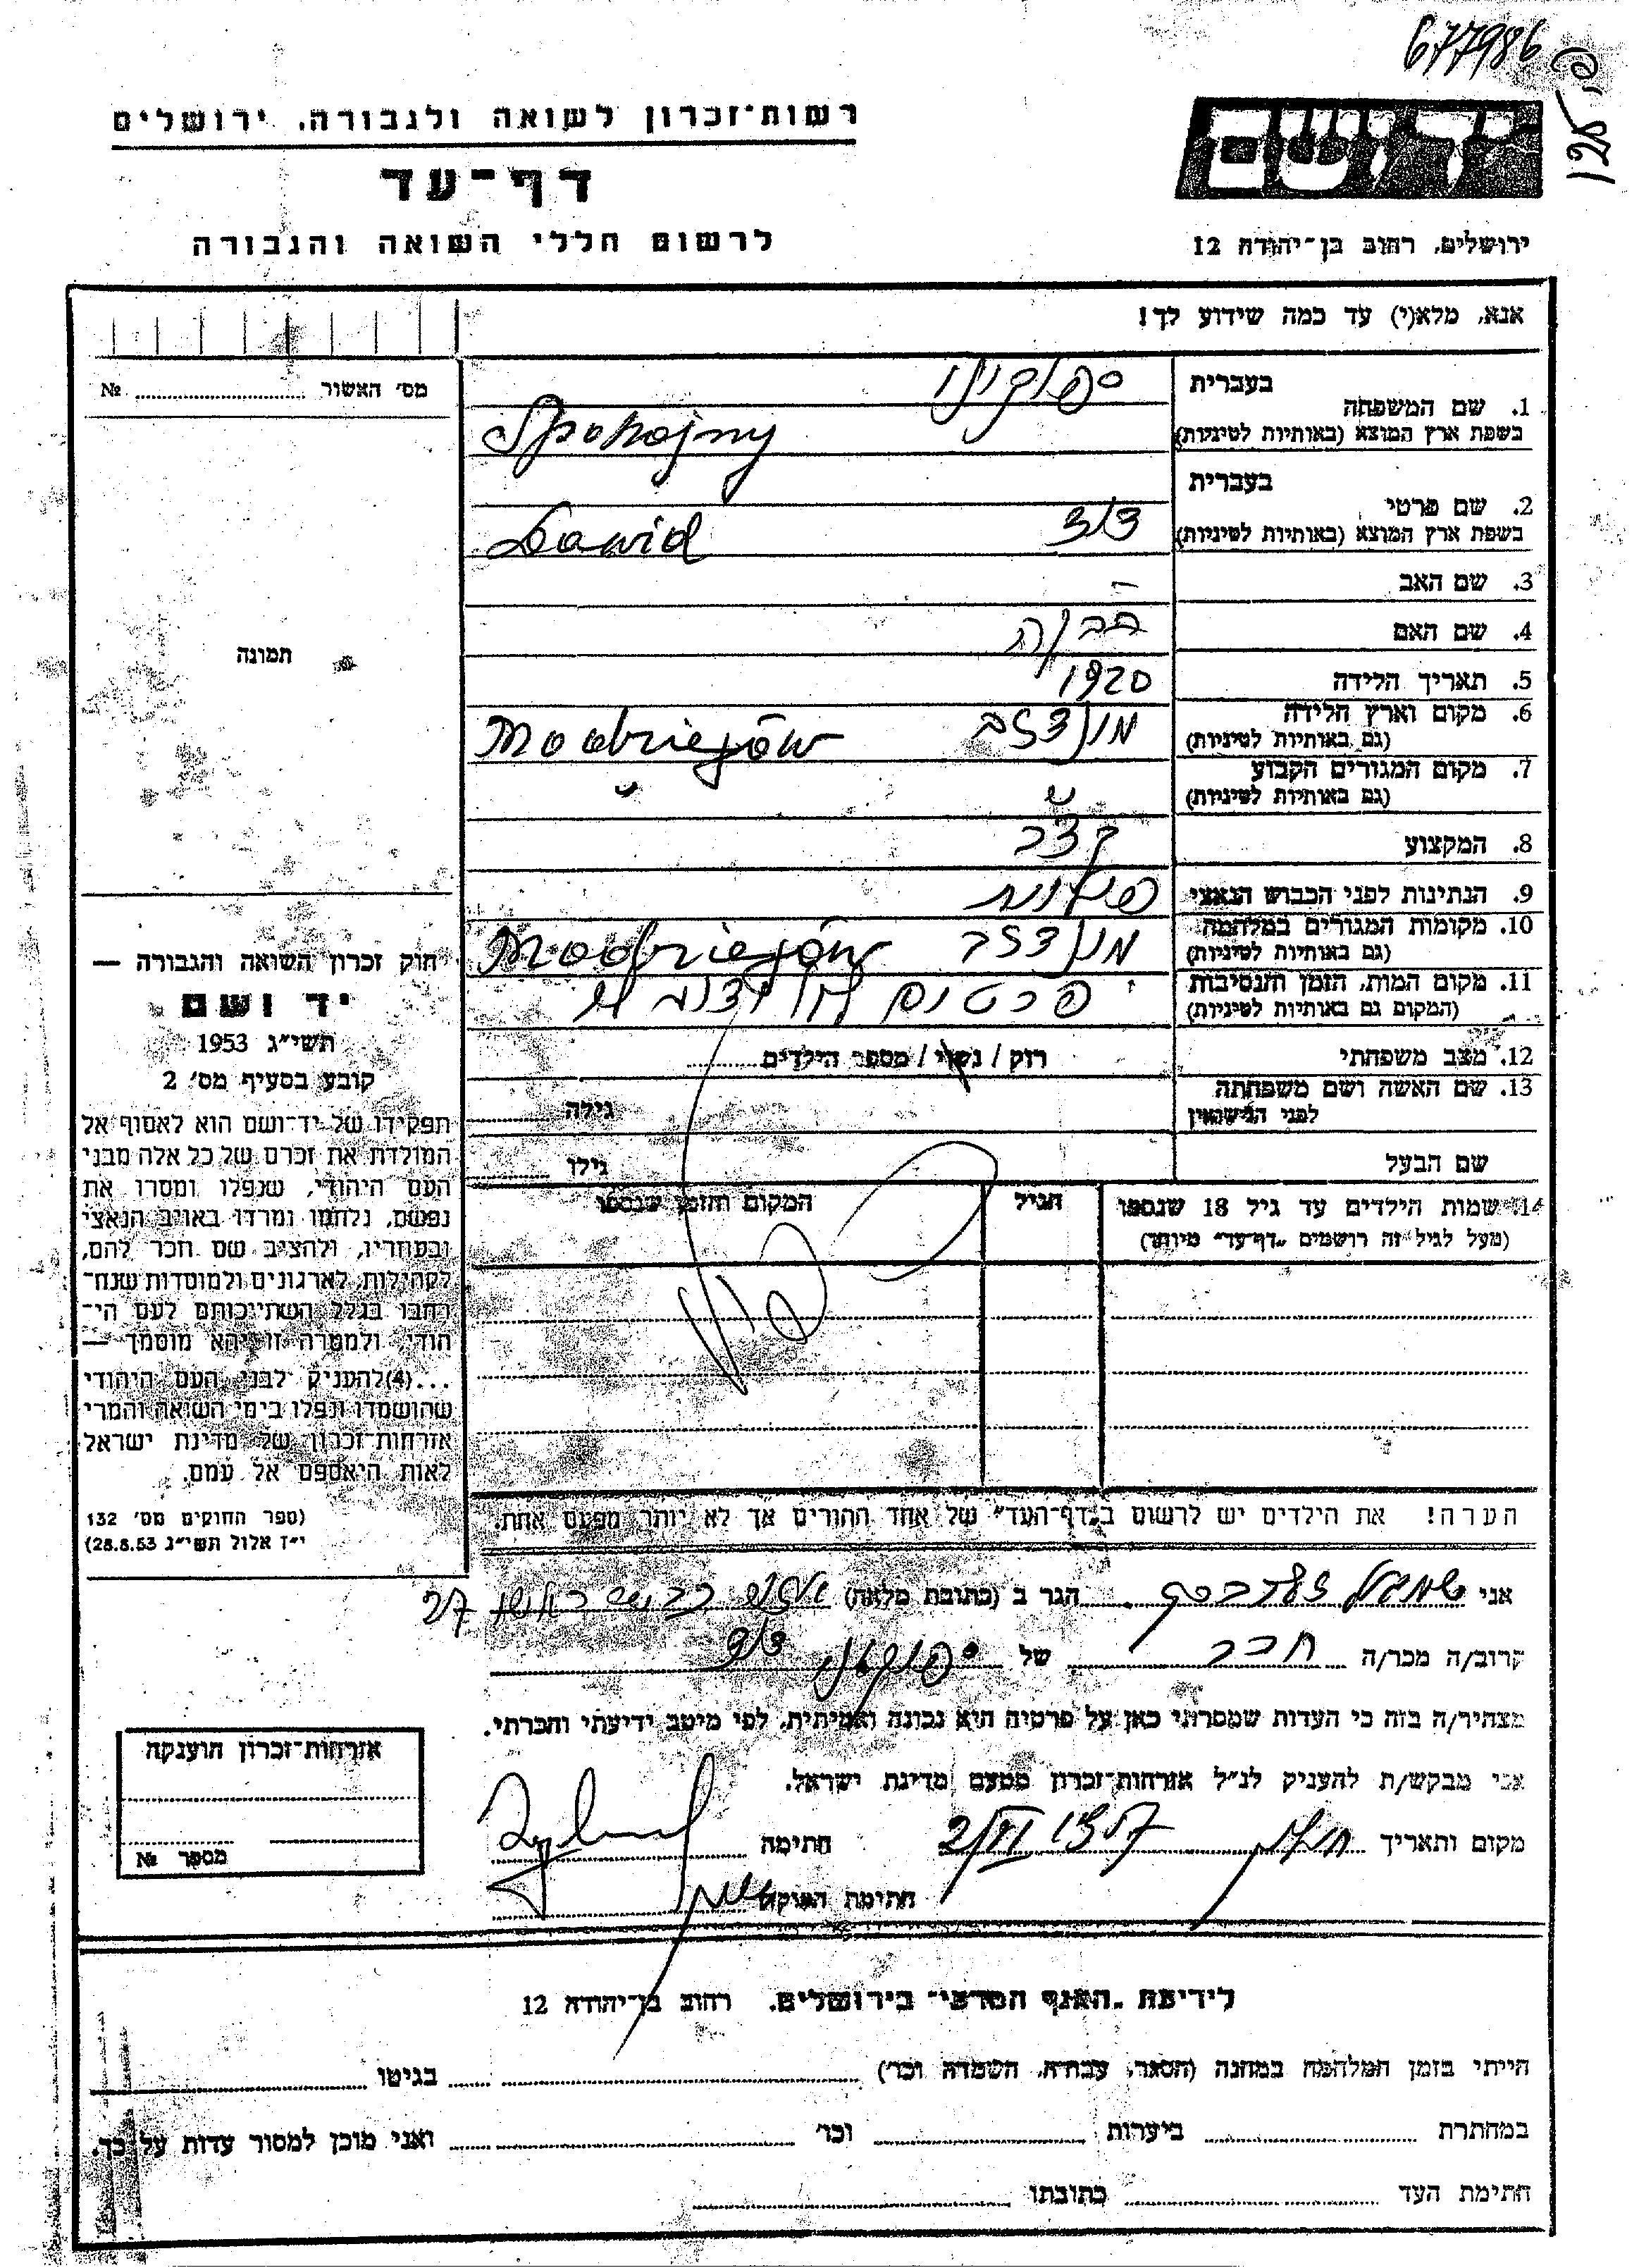 677986
רשות־זכרון לשואה ולגבורה, ירושלים
יד ושם
דף־עד
לרשום חללי השואה והגבורה
ירושלים, רחוב בן־יהודה 12
אנא, מלא(י) עד כמה שידוע לך!
מס׳ האשור № 
בעברית
1. שם המשפחה
בשפת ארץ המוצא (באותיות לטיניות) Spokojny
בעברית
2. שם פרטי דוד
בשפת ארץ המוצא (באותיות לטיניות) Dawid
3. שם האב –
4. שם האם
5. תאריך הלידה 1920
6. מקום וארץ הלידה Modrzejów
(גם באותיות לטיניות)
7. מקום המגורים הקבוע
(גם באותיות לטיניות)
8. המקצוע קצב
9. הנתינות לפני הכבוש הנאצי פולנית
10. מקומות המגורים במלחמה Modrzejów
(גם באותיות לטיניות)
11. מקום המות, הזמן והנסיבות פרטים לא
(המקום גם באותיות לטיניות)
12. מצב משפחתי רוק / נשוי / מספר הילדים
13. שם האשה ושם משפחתה
לפני הנישואין גילה
שם הבעל גילו
14. שמות הילדים עד גיל 18 שנספו הגיל המקום והזמן שנספו
(מעל לגיל זה רושמים "דף־עד" מיוחד)
הערה! את הילדים יש לרשום ב"דף־העד" של אחד ההורים אך לא יותר מפעם אחת.
תמונה
חוק זכרון השואה והגבורה —
יד ושם
תשי״ג 1953
קובע בסעיף מס׳ 2
תפקידו של יד־ושם הוא לאסוף אל
המולדת את זכרם של כל אלה מבני
העם היהודי, שנפלו ומסרו את
נפשם, נלחמו ומרדו באויב הנאצי
ובעוזריו, ולהציב שם וזכר להם,
לקהילות, לארגונים ולמוסדות שנח־
רבו בגלל השתייכותם לעם הי־
הודי, ולמטרה זו יהא מוסמך —
...(4) להעניק לבני העם היהודי
שהושמדו ונפלו בימי השואה והמרי
אזרחות־זכרון של מדינת ישראל
לאות היאספם אל עמם.
(ספר החוקים מס׳ 132
י״ז אלול תשי״ג 28.8.53)
אני הגר ב (כתובת מלאה) 27
קרוב/ה מכר/ה חבר של דוד
מצהיר/ה בזה כי העדות שמסרתי כאן על פרטיה היא נכונה ואמיתית, לפי מיטב ידיעתי והכרתי.
אני מבקש/ת להעניק לנ״ל אזרחות־זכרון מטעם מדינת ישראל.
מקום ותאריך חתימה
חתימת הפוקד
אזרחות־זכרון הוענקה
מספר №
לידיעת "האגף המדעי" בירושלים, רחוב בן־יהודה 12
הייתי בזמן המלחמה במחנה (הסגר, עבודה, השמדה וכו׳) בגיטו
במחתרת ביערות וכו׳ ואני מוכן למסור עדות על כך.
חתימת העד כתובתו